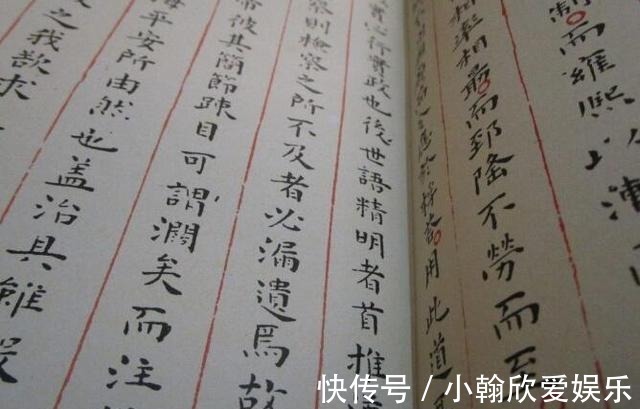 制而雍熙
相率相勗而郅隆不勞而至
用此道
實心行實政也後世語精明者首推
察則檢察之所不及者必漏遺焉故
帝彼其簡節疎目可謂濶矣而注
平安所由然也蓋治具雖嚴
之我欲求
快传号／小翰欣爱娱乐